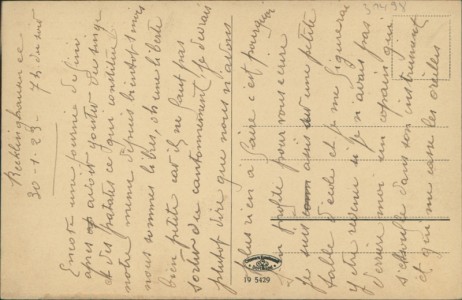 Recklinghausen le
30-1-23- 7h du soir
Encore une journée de fini
après avoir goûter du singe
et des patates ce qui constitue
notre menu depuis bientôt 3 mois
nous sommes libres, oh une liberté
bien petite car il ne faut pas
sortir du cantonnement, je devrais
plutôt dire que nous n'avons
plus rien à faire c'est pourquoi
j'en profite pour vous écrire
Je suis assis sur une petite
table d'école et je me figurerai
y être revenu si je n'avais pas
derrière moi un copain qui
s'essouffle dans son instrument
et qui me casse les oreilles
19 5429